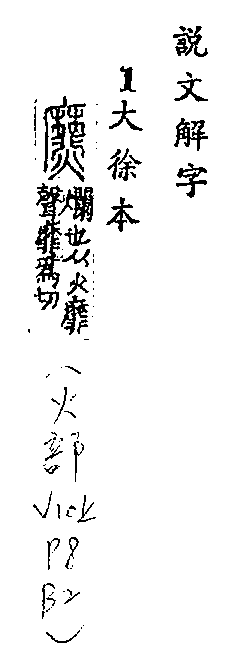 説文解字
1大徐本
㸏
爛也从火靡
聲靡爲切
(火部
V10上
P8
B2)